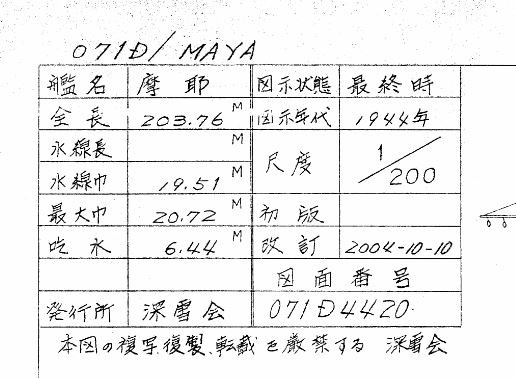 071D/ MAYA
艦名 摩耶 図示状態 最終時
全長 203.76 M 図示年代 1944年
水線長 M 尺度 1/200
水線巾 19.51 M
最大巾 20.72 M 初版
吃水 6.44 M 改訂 2004-10-10
図面番号
発行所 深雪会 071D4420
本図の複写、複製、転載を厳禁する 深雪会